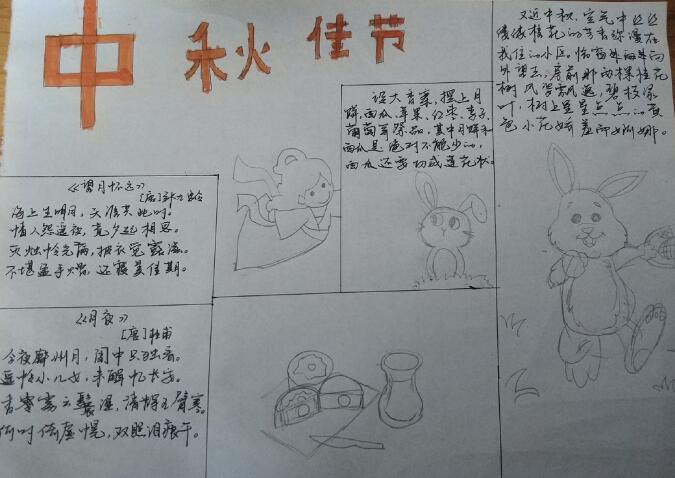 中秋佳节
设大香案，摆上月
饼、西瓜、苹果、红枣、李子、
葡萄等祭品，其中月饼和
西瓜是绝对不能少的，
西瓜还要切成莲花状。
又近中秋，空气中丝丝
缕缕桂花的芳香弥漫在
我住的小区。临窗
外望去，房前那两棵桂花
树风姿飘逸，碧枝绿
叶，树上星星点点的黄
色小花娇羞而婀娜。
《望月怀远》
[唐]张九龄
海上生明月，天涯共此时。
情人怨遥夜，竟夕起相思。
灭烛怜光满，披衣觉露滋。
不堪盈手赠，还寝梦佳期。
《月夜》
[唐]杜甫
今夜鄜州月，闺中只独看。
遥怜小儿女，未解忆长安。
香雾云鬟湿，清辉玉臂寒。
何时倚虚幌，双照泪痕干。